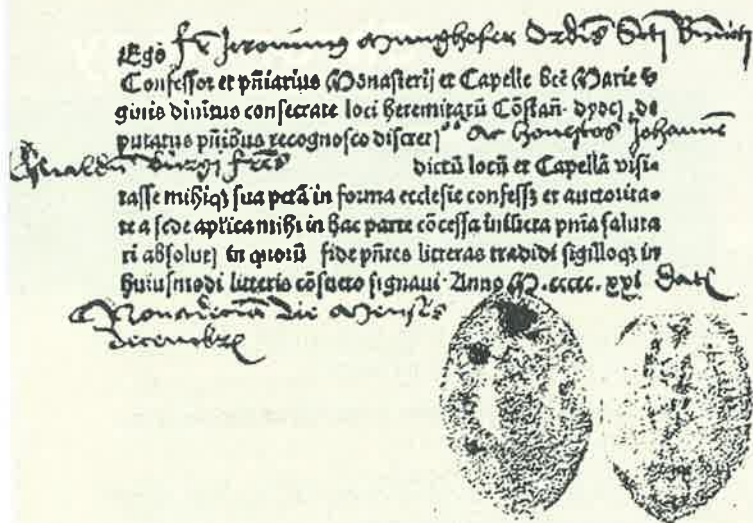 Ego fr̄ Jeronimus Munghofer Ordīs Scti Bn̄dicti
Confessor et pn̄iarius Monasterij et Capelle btē Marie v
ginis diuinitus consecrate loci heremitarū Cōstan̄· dyoc̄ de
putatus pn̄tibus recognosco discret ac honestos Johannē
Oswaldū frēs dictū locū et Capellā visi-
tasse mihiqȝ sua pctā in forma ecclesie confessȝ et auctorita-
te a sede aplica mihi in hac parte cōcessa iniūcta pn̄ia saluta
ri absolui in quorū fidē pn̄tes litteras tradidi sigilloqȝ in
huiusmodi litteris cōsueto signaui· Anno M.ccccc.xxj Dat
die Mensis
decembr